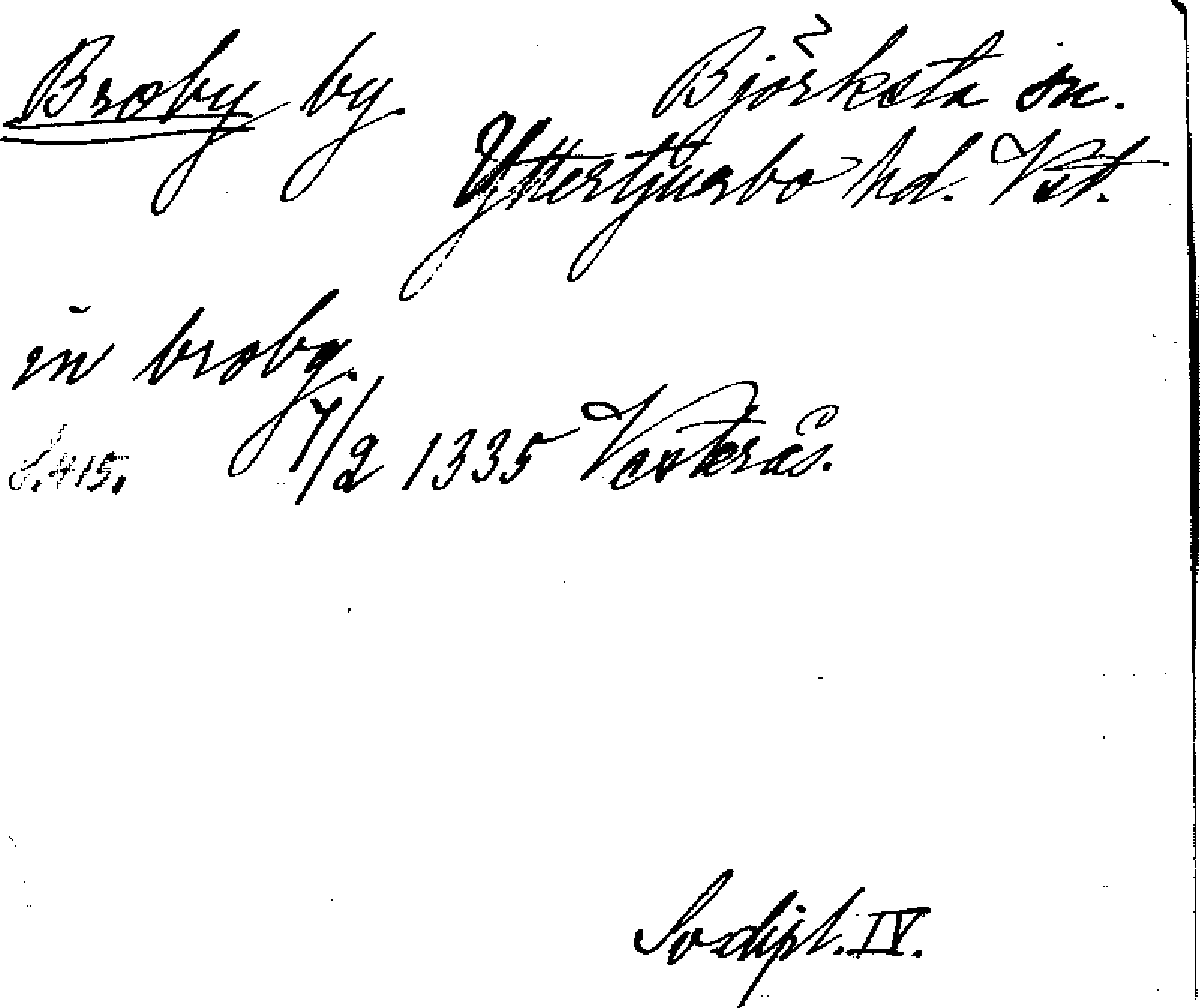 Broby by. Björksta sn.
Yttertjurbo hd. Vst.
in broby.
S. 415. 4/2 1335 Vesterås.
Sv. dipl. IV.